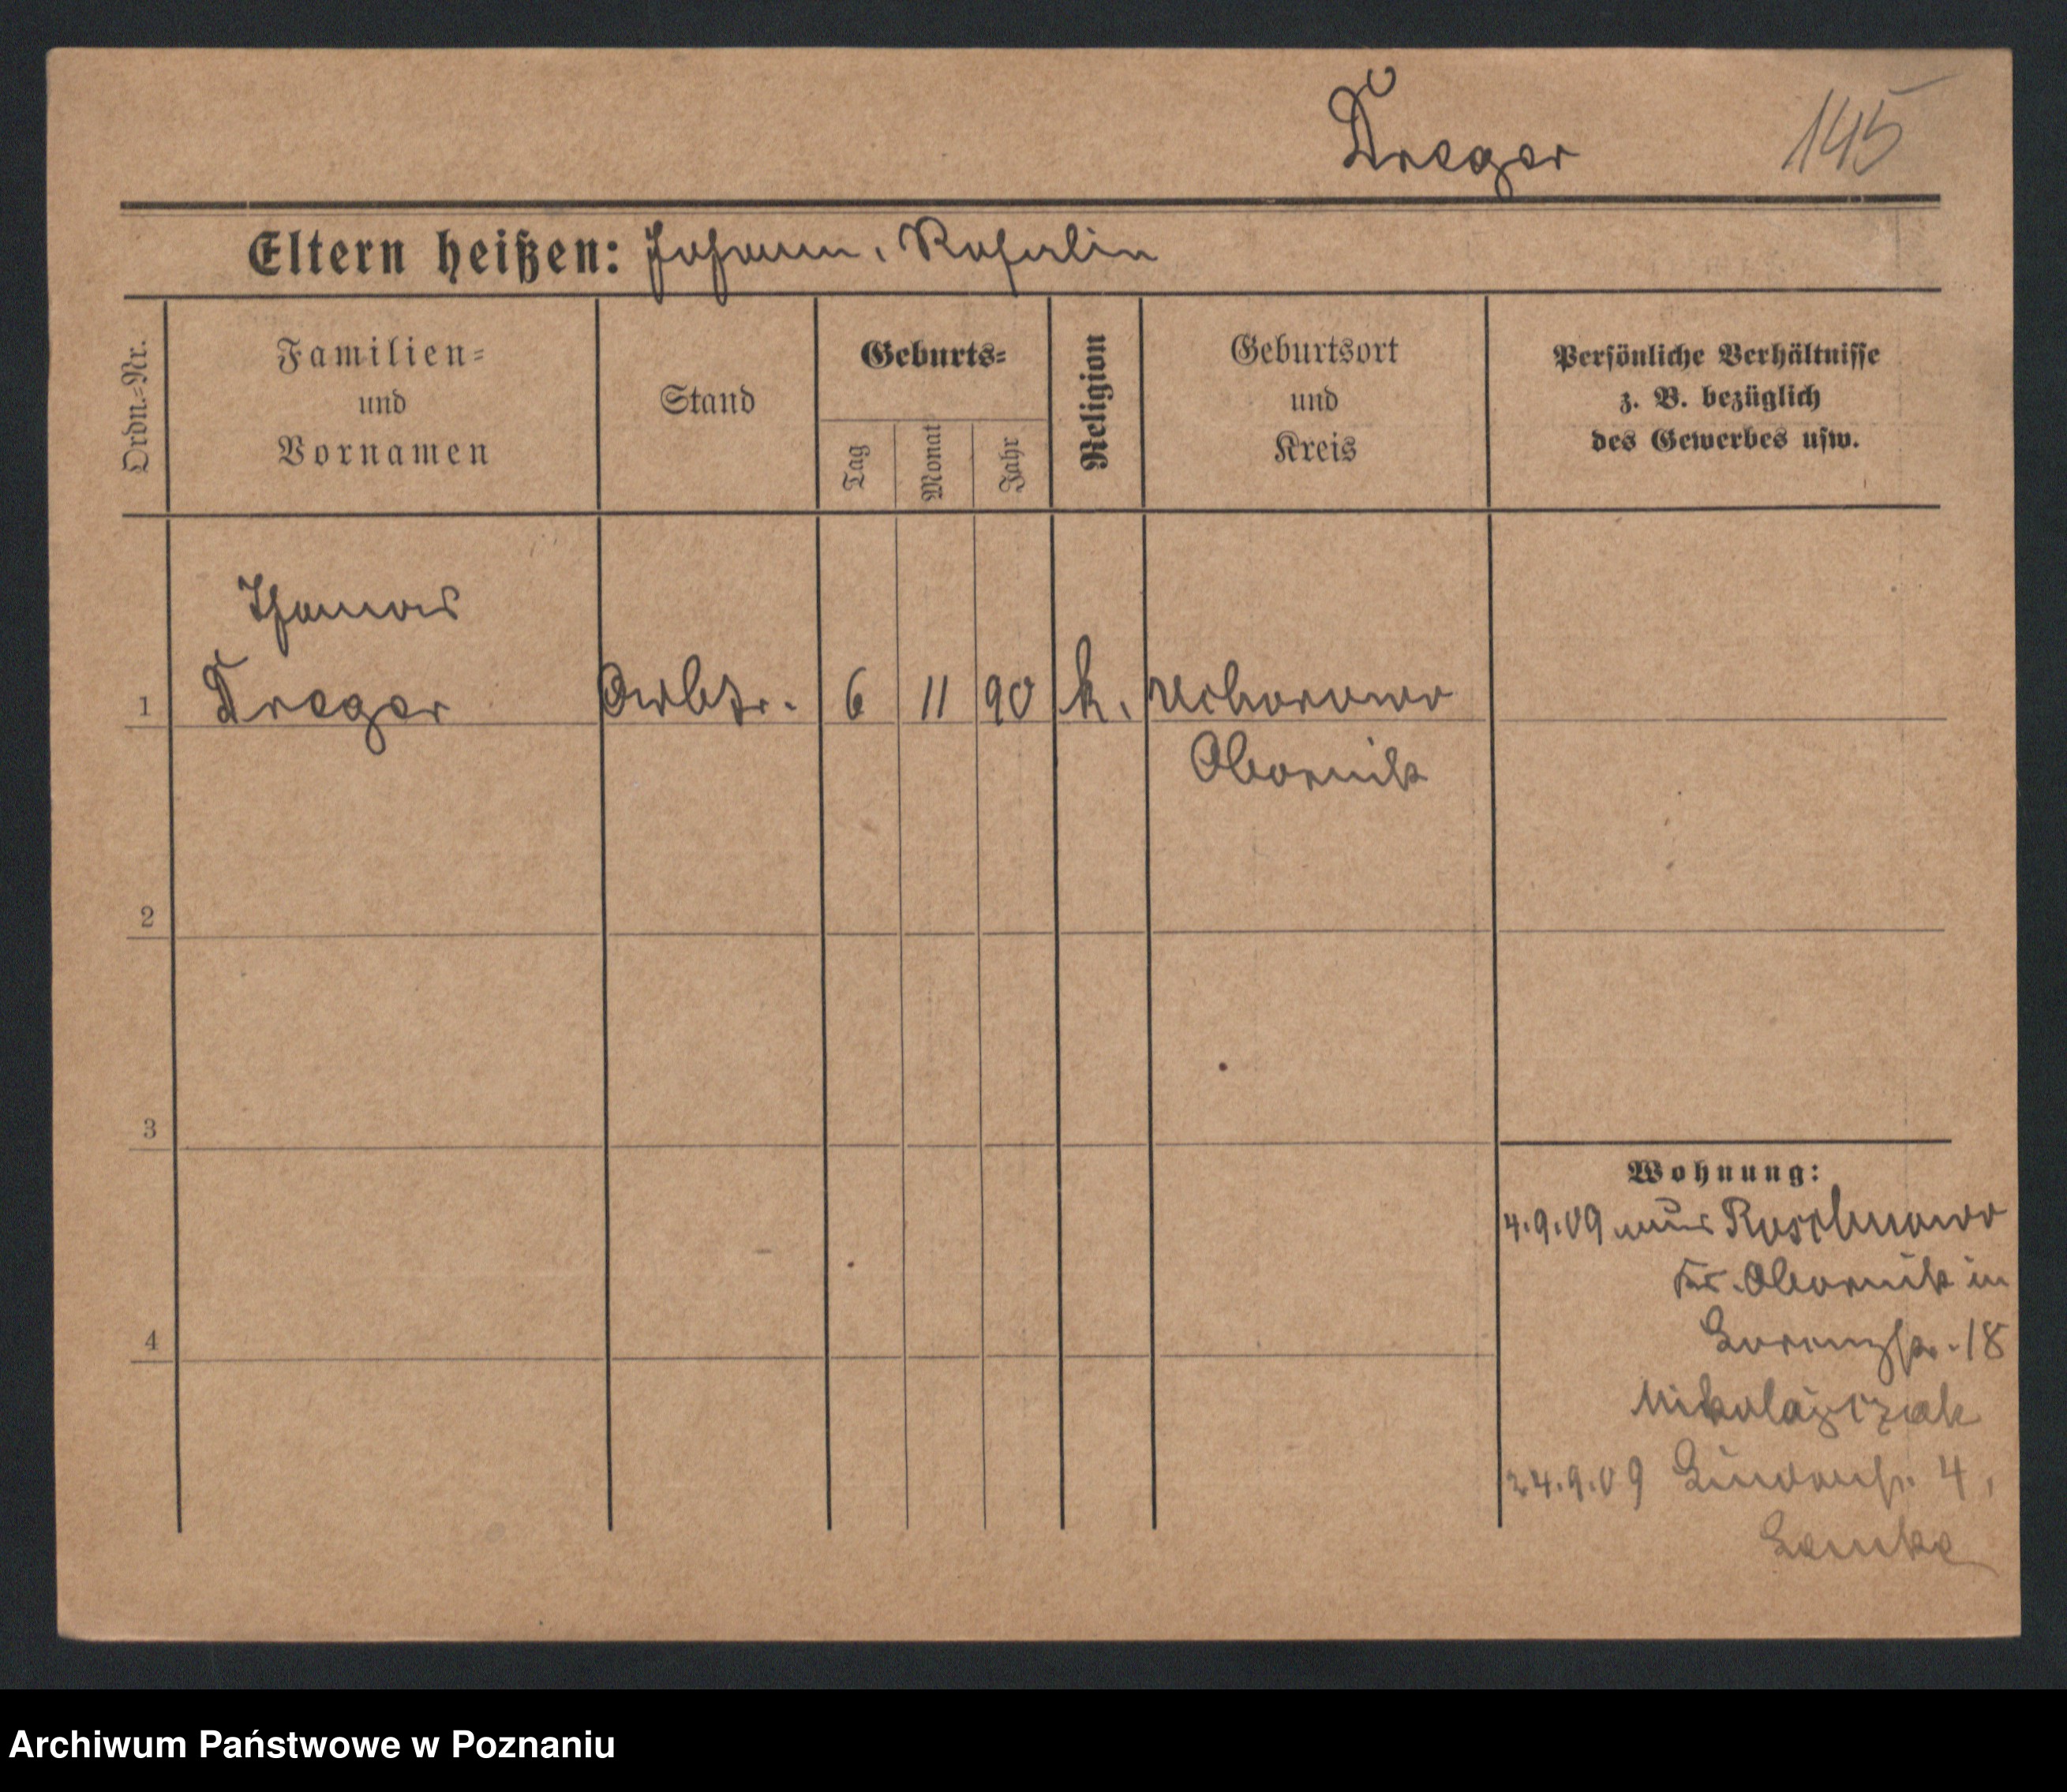 Dreger 145
Eltern heißen: Johann, Rosalin
Ordn.=Nr.
Familien=
und
Vornamen
Stand
Geburts=
Tag
Monat
Jahr
Religion
Geburtsort
und
Kreis
Persönliche Verhältnisse
z. B. bezüglich
des Gewerbes usw.
Thomas
1 Dreger Arbtr. 6 11 90 k. Uchorowo
Obornik
2
3
4
Wohnung:
4.9.09 aus Roschnowo
Kr. Obornik in
Lorenzstr. 18
Mikolajczak
24.9.09 Lindenstr. 4,
Lemke
Archiwum Państwowe w Poznaniu